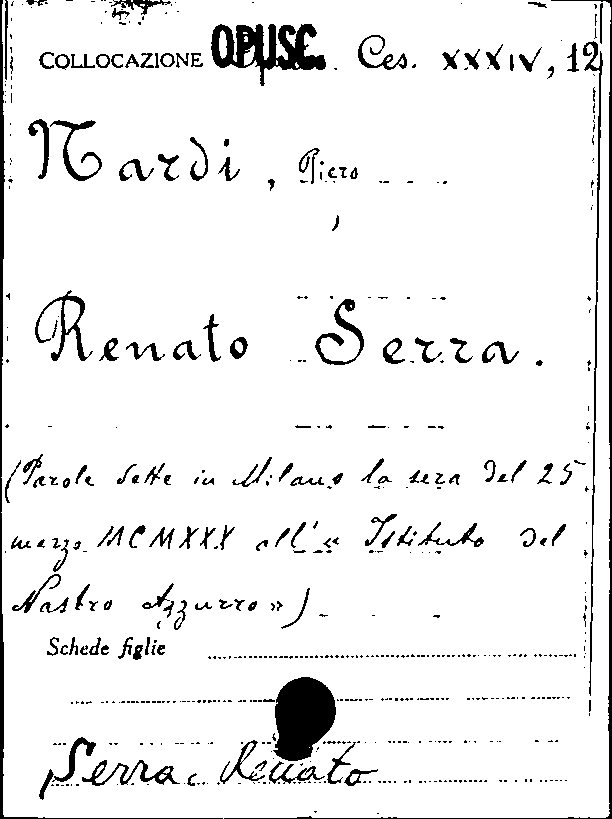 COLLOCAZIONE OPUSC. Ces. XXXIV, 12
Nardi, Piero
Renato Serra.
(Parole dette in Milano la sera del 25
marzo MCMXXX all'« Istituto del
Nastro Azzurro»)
Schede figlie
Serra, Renato